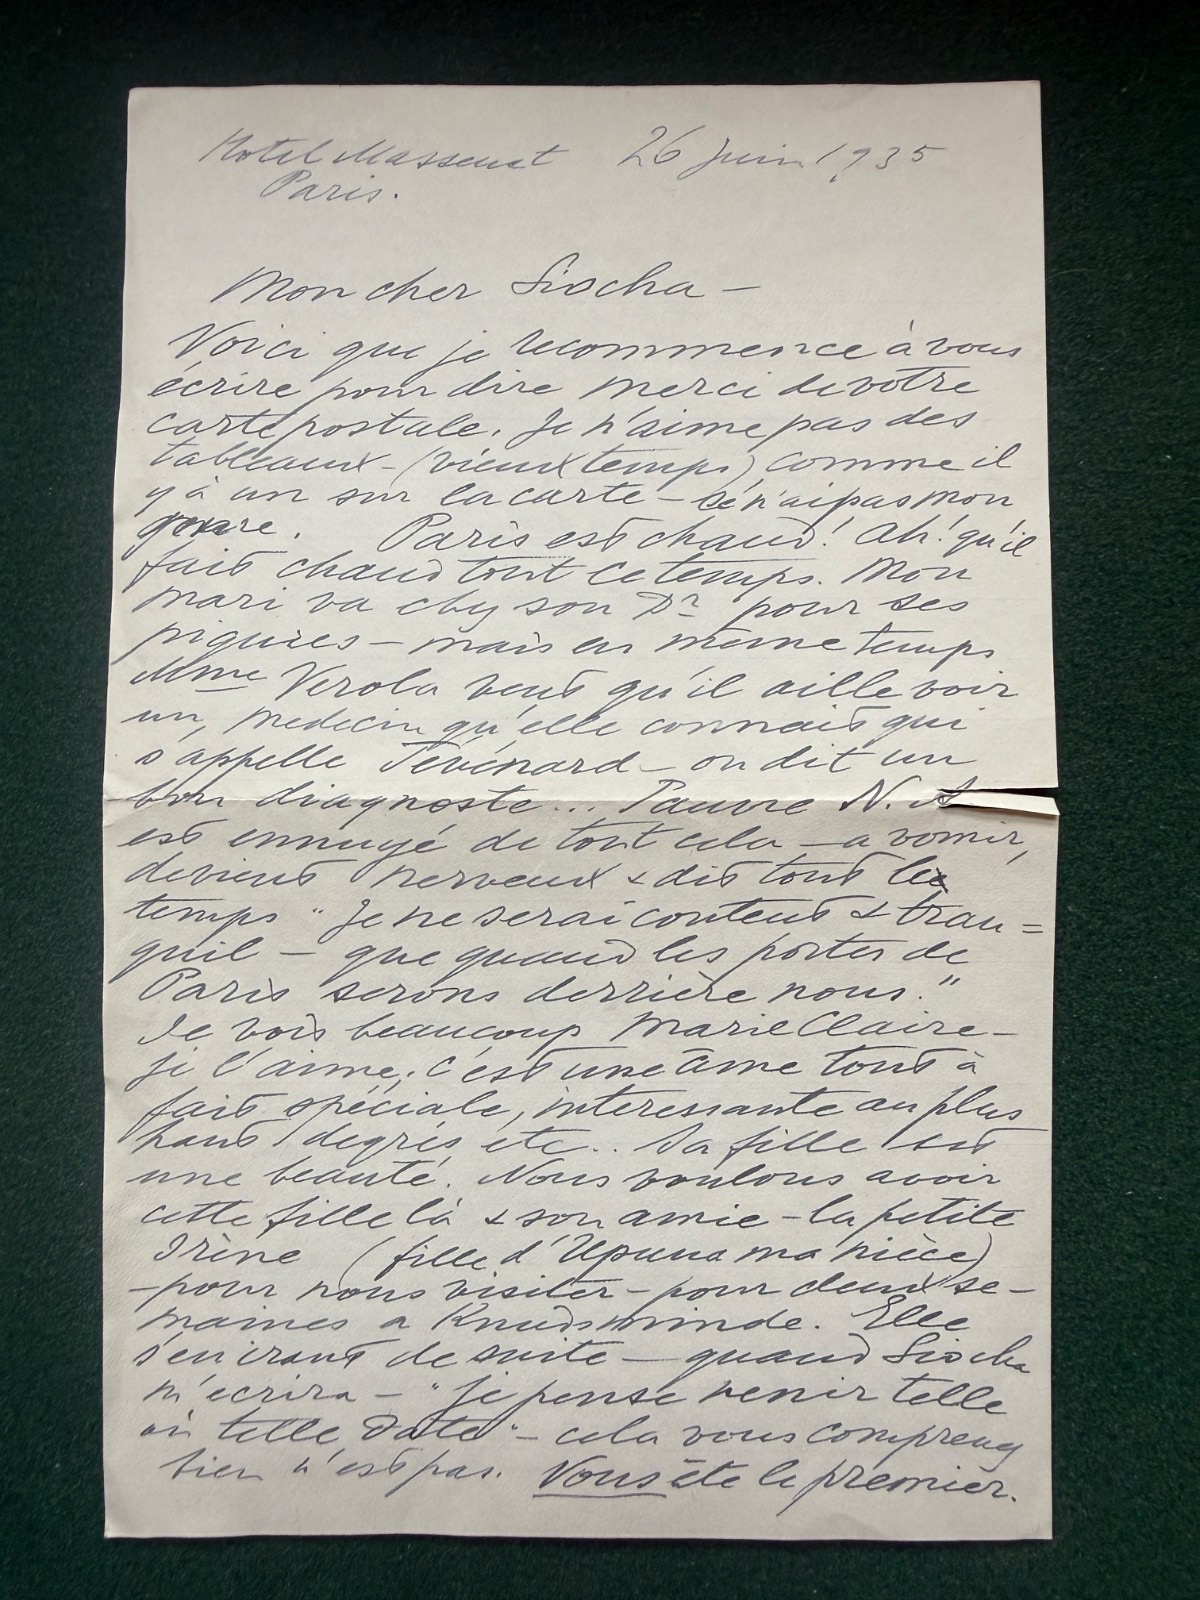 Hotel Massenet 26 juin 1935
Paris.
Mon cher Siocha —
Voici que je recommence à vous
écrire pour dire merci de votre
carte postale. Je n'aime pas des
tableaux - (vieux temps) comme il
y à un sur la carte — sé n'ai pas mon
genre. Paris est chaud! Ah! qu'il
fait chaud tout ce temps. Mon
mari va chez son Dr pour ses
piqures — mais en même temps
Mme Verola veut qu'il aille voir
un, medecin qu'elle connait qui
s'appelle Tévénard — on dit un
bon diagnoste... Pauvre N. A
est ennuyé de tout cela — a vomir,
devient nerveux & dit tout le
temps "Je ne serai content & tran=
quil — que quand les portes de
Paris serons derrière nous."
Je vois beaucoup Marie Claire —
je l'aime; c'est une âme tout à
fait spéciale, interessante au plus
haut degrés, etc.. Sa fille est
une beauté. Nous voulons avoir
cette fille là & son amie — la petite
Irène (fille d' ma nièce)
— pour nous visiter — pour deux se-
maines a Knudsminde. Elle
s'en iront de suite — quand Siocha
m'ecrira — "je pense venir telle
où telle date" — cela vous comprenez
bien n'est pas. Vous ête le premier.